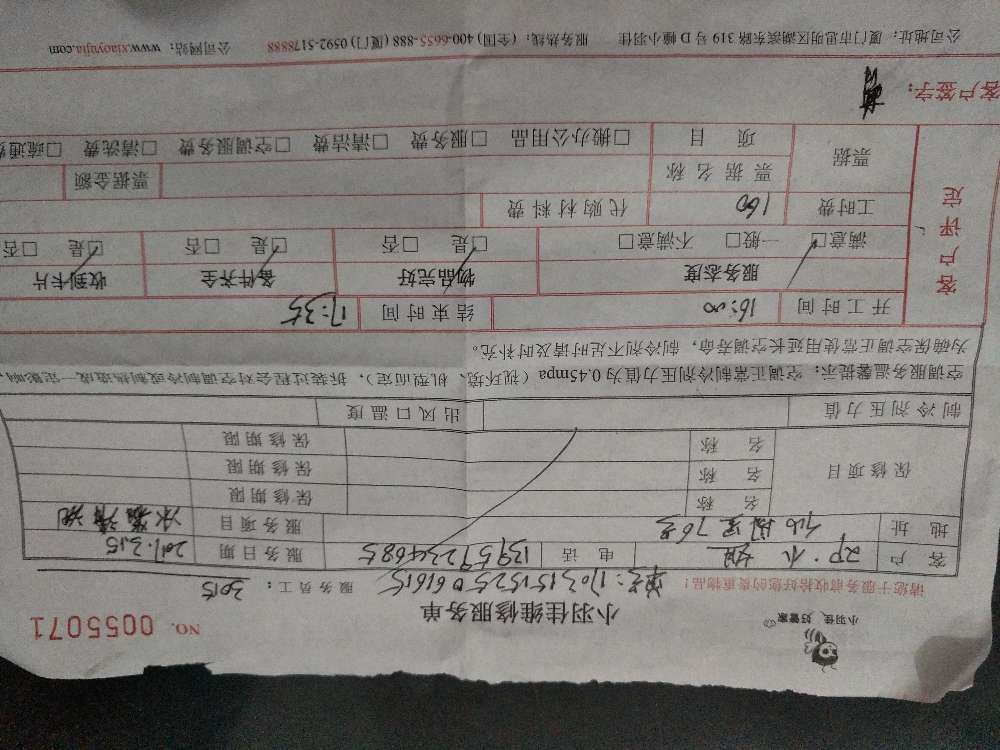 小羽佳，好管家
NO. 0055071
小羽佳维修服务单
单号：1703151525061615
请您于服务前收拾好您的贵重物品！ 服务员工：3015
客户 邓小姐 电话 13959234685 服务日期 2017.3.15
地址 仙阁里76号 服务项目 冰箱清洗
保修项目 名称 保修期限
名称 保修期限
名称 保修期限
制冷剂压力值 出风口温度
空调服务温馨提示：空调正常制冷剂压力值为0.45mpa（视环境、机型而定），拆装过程会对空调制冷或制热造成一定影响，
为确保空调正常使用延长空调寿命，制冷剂不足时请及时补充。
客户评定
开工时间 16:00 结束时间 17:35
服务态度 物品完好 备件齐全 收到卡片
满意□ 一般□ 不满意□ □是 □否 □是 □否 □是 □否
工时费 160 代购材料费
票据 票据名称 票据金额
项目 □搬办公用品 □服务费 □清洁费 □空调服务费 □清洗费 □疏通费
客户签字：
公司地址：厦门市思明区湖滨东路319号D幢小羽佳 服务热线：(全国) 400-6655-888 (厦门) 0592-5178888 公司网站：www.xiaoyujia.com